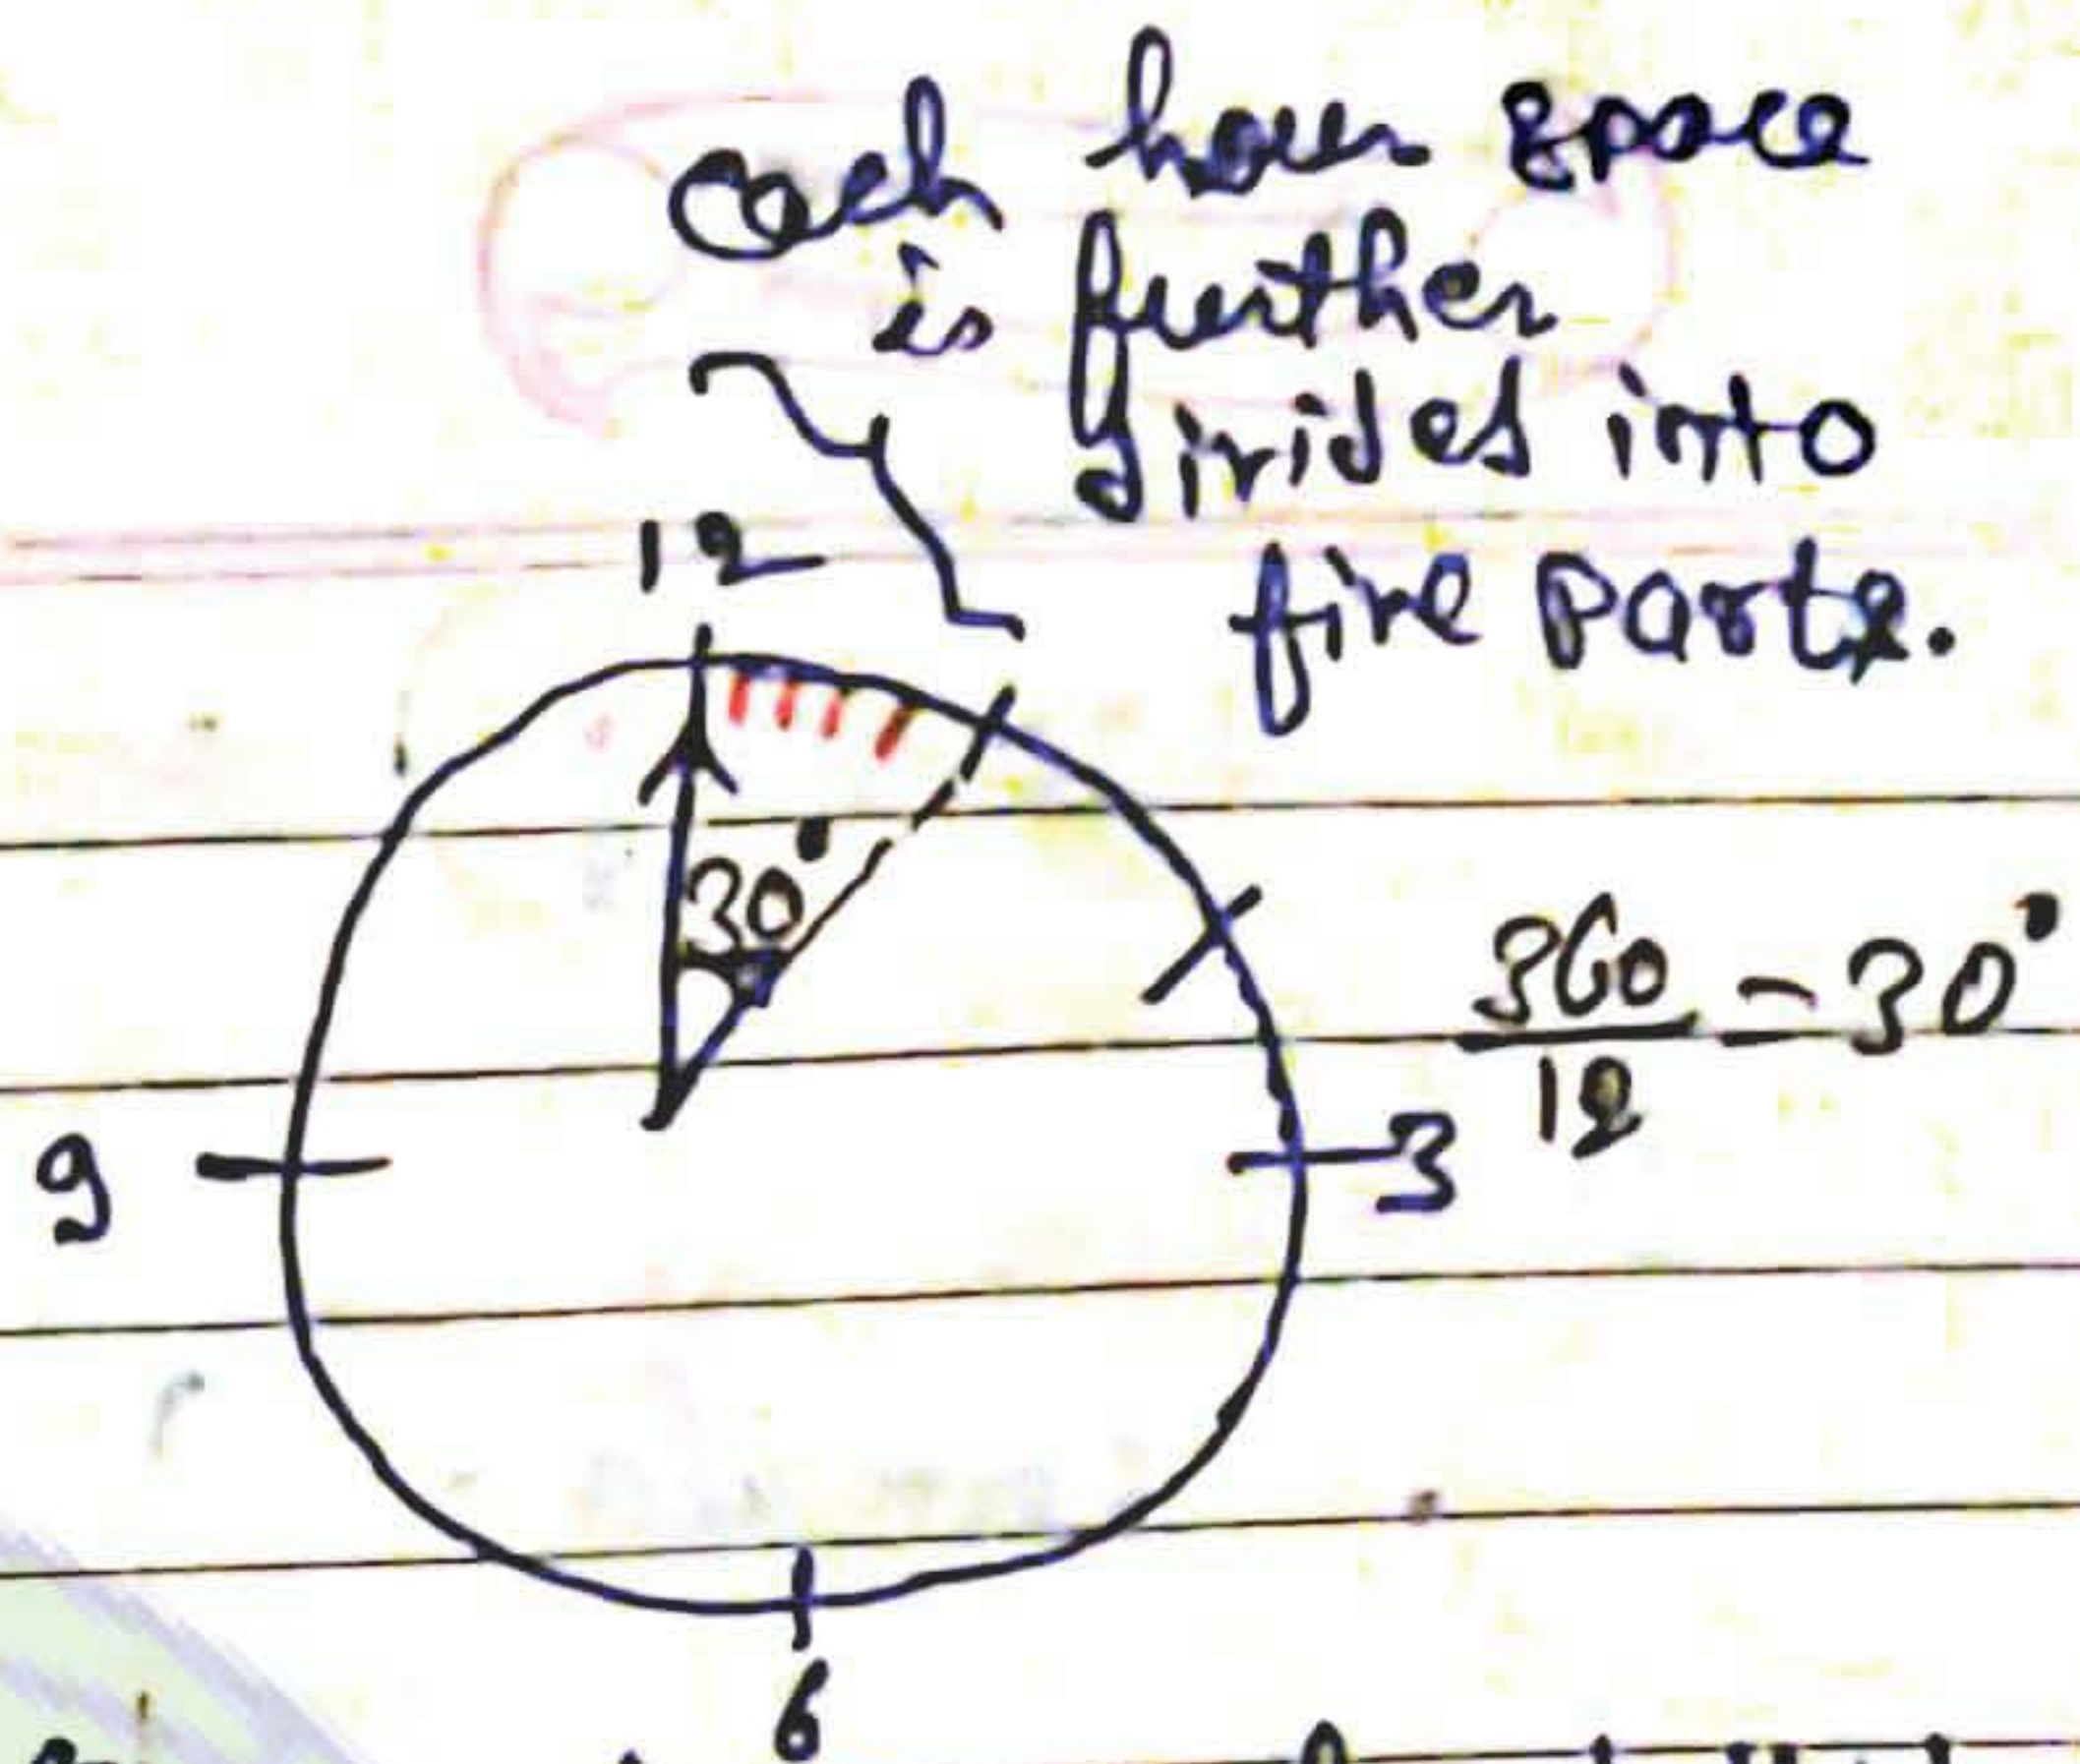 each hour space
is further
divides into
five parts.
12
30°
360/12 = 30°
9
3
6